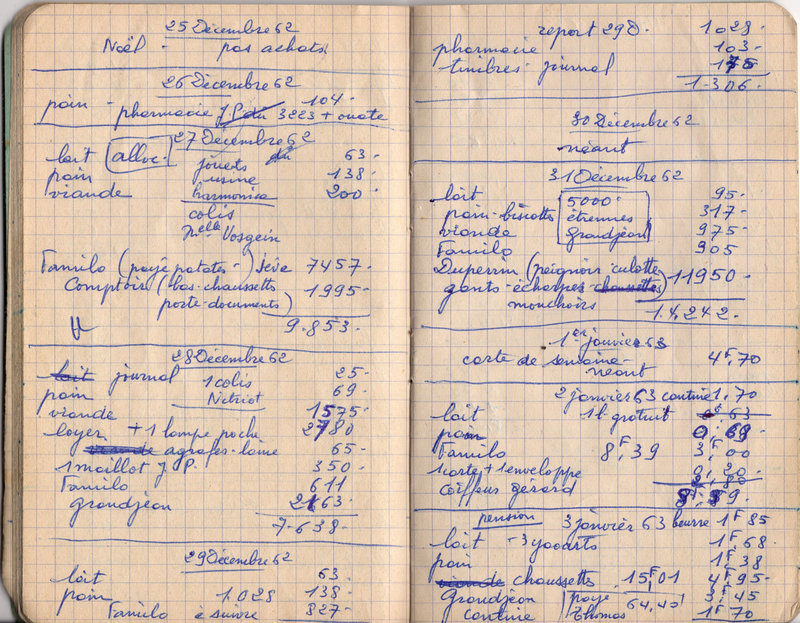 25 Décembre 62
Noël - pas achats
26 Décembre 62
pain - pharmacie J.P. du 3223 + ouate 104.-
27 Décembre 62
lait alloc. jouets du 63.-
pain usine 138.-
viande harmonica 200.-
colis
Vosgein
Familo (payé patates-) Sève 7457.-
Comptoir (bas-chaussettes 1995.-
porte-documents)
9.853.-
28 Décembre 62
lait journal 1 colis 25.-
pain Nitriot 69.-
viande 1575.-
loyer + 1 lampe poche 2780
viande agrafes-laine 65.-
1 maillot J.P. 350.-
Familo 611
grandjean 2163.-
7.638.-
29 Décembre 62
lait 63.-
pain 1.028 138.-
Familo à suivre 827.-
report 29 D. 1.028-
pharmacie 103-
timbres-journal 175
1.306.-
30 Décembre 62
néant
31 Décembre 62
lait 5000.- 95.-
pain-biscottes étrennes 317-
viande Grandjean 975-
Familo 905
Duperrin (peignoir-culotte
gants-écharpes-chaussettes) 11950.-
mouchoirs
14.242.-
1er janvier 63
carte de semaine 4F,70
néant
2 janvier 63 cantine 1,70
lait 1 b. gratuit 0F 63
pain 0,69.
Familo 8F,39 3F,00
1 carte + 1 enveloppe 0,20.
coiffeur gérard 2,80
8F,89.
pension 3 janvier 63 beurre 1F 85
lait - 3 yaoarts 1F,68.
pain 1F,38
viande chaussettes 15F,01 4F,95-
Grandjean paye 3F,45
cantine Thomas 64,40 1F 70